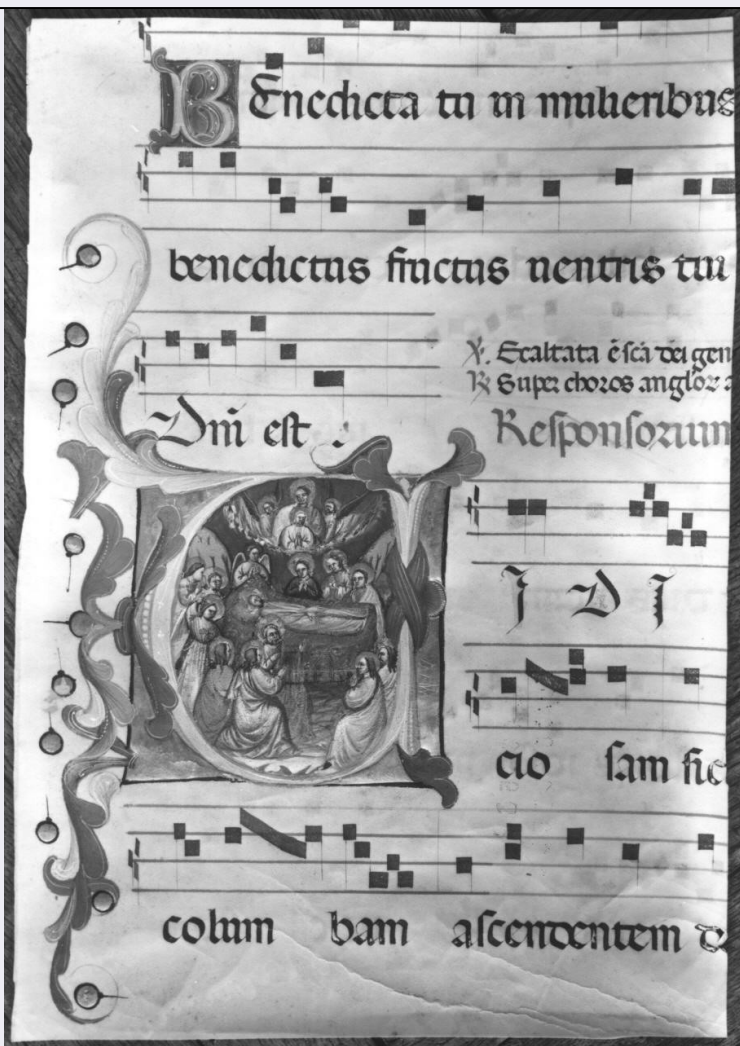 BEnedicta tu in mulieribus
benedictus fructus uentris tui
℣. Exaltata ē scā dei gen
℟ Super choros angloꝝ a
Dn̄i est :
Responsorium
VIDI
cio sam sic
colum bam ascendentem de